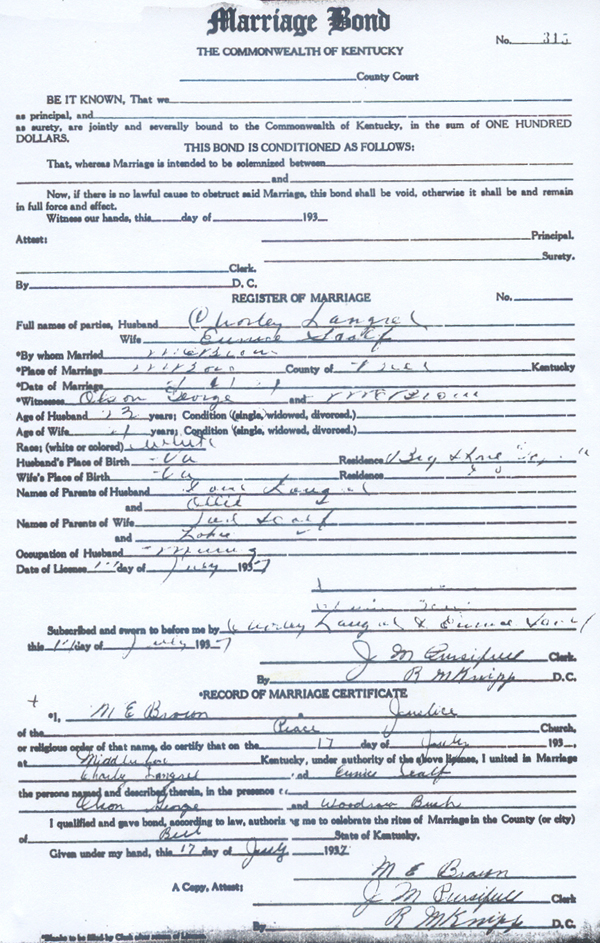 Marriage Bond
No. 315
THE COMMONWEALTH OF KENTUCKY
County Court
BE IT KNOWN, That we
as principal, and
as surety, are jointly and severally bound to the Commonwealth of Kentucky, in the sum of ONE HUNDRED
DOLLARS.
THIS BOND IS CONDITIONED AS FOLLOWS:
That, whereas Marriage is intended to be solemnized between
and
Now, if there is no lawful cause to obstruct said Marriage, this bond shall be void, otherwise it shall be and remain
in full force and effect.
Witness our hands, this day of 193
Attest: Principal.
Surety.
Clerk.
By D. C.
REGISTER OF MARRIAGE No.
Full names of parties, Husband Charley Langrel
Wife Eunice Scalf
*By whom Married M E Brown
*Place of Marriage County of Kentucky
*Date of Marriage
*Witnesses Olson George and M E Brown
Age of Husband years; Condition (single, widowed, divorced.)
Age of Wife years; Condition (single, widowed, divorced.)
Race; (white or colored) White
Husband's Place of Birth Va Residence Big Stone
Wife's Place of Birth Va Residence
Names of Parents of Husband Langrel
and Ollie
Names of Parents of Wife Scalf
and
Occupation of Husband Mining
Date of License 17 day of July 1937
Subscribed and sworn to before me by Charley Langrel & Eunice
this 17 day of July 1937
J M Pursifull Clerk.
By R McKnipp D.C.
*RECORD OF MARRIAGE CERTIFICATE
*I, M E Brown a Justice
of the Peace Church,
or religious order of that name, do certify that on the 17 day of July 193 ,
at Kentucky, under authority of the above license, I united in Marriage
Charly Langrel and Eunice Scalf
the persons named and described therein, in the presence of
Olson George and Woodrow Bush
I qualified and gave bond, according to law, authorizing me to celebrate the rites of Marriage in the County (or city)
of Bell State of Kentucky.
Given under my hand, this 17 day of July 1937
M E Brown
A Copy, Attest: J M Pursifull Clerk
By R McKnipp D.C.
*Blanks to be filled by Clerk after return of License.